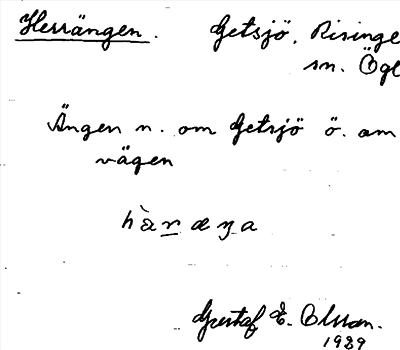 Herrängen. Getsjö, Risinge
sn. Ögl
Ängen n. om Getsjö ö. om
vägen
hàræŋa
Gustaf E. Olsson.
1929